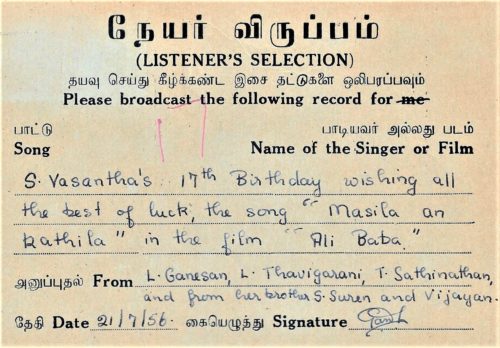 நேயர் விருப்பம்
(LISTENER'S SELECTION)
தயவு செய்து கீழ்க்கண்ட இசை தட்டுகளை ஒலிபரப்பவும்
Please broadcast the following record for me
பாட்டு பாடியவர் அல்லது படம்
Song Name of the Singer or Film
17
S. Vasantha's 17th Birthday wishing all
the best of luck, the song "Masila an
kathila" in the film "Ali Baba."
அனுப்புதல் From L. Ganesan, L. Thavigarani, T. Sathinathan,
and from her brother S. Suren and Vijayan.
தேதி Date 21/7/56. கையெழுத்து Signature